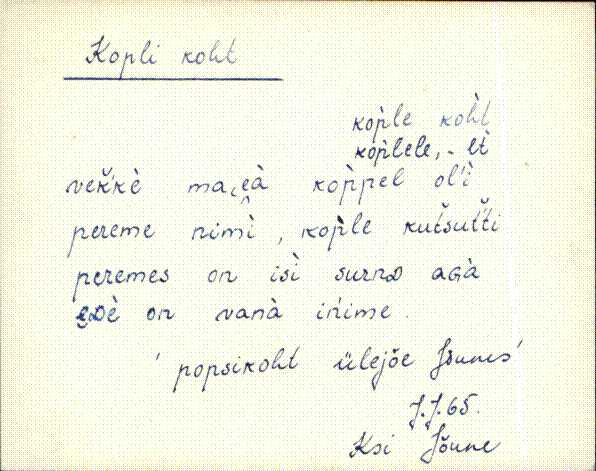 Kopli koht
kop̀le koh̀t
kop̀lele, - lt̀
veǩ'kè majeà kop̀pel ol'ì
pereme nimì, kop̀le kut́sut̋ti
peremes on isì surnᴅ aɢà
eᴅè on vanà ińime.
' popsikoht ülejõe Jõunes'
J.J.65.
Ksi Jõune